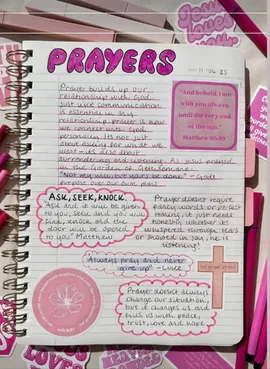 Jesus
loves
PRAYERS
Prayer builds up our
relationship with God.
Just like communication
is essential in any
relationship, prayer is how
we connect with God
personally. It's not just
about asking for what we
want - it's also about
surrendering and listening. As Jesus prayed
in the Garden of Gethsemane:
"Not my will but yours be done" - God's
purpose over our own plans.
"And behold, I am
with you always,
until the very end
of the age."
Matthew 28:20
ASK, SEEK, KNOCK.
"Ask and it will be given
to you; seek and you will
find; knock and the
door will be opened
to you." Matthew
Prayer doesn't require
fancy words or perfect
timing, it just needs
honesty. Whether it's
whispered through tears
or shouted in joy, he is
listening!
"Always pray and never
give up" - Luke
Prayer doesn't always
change our situation,
but it changes us and
fills us with peace,
trust, love and hope
LOVES